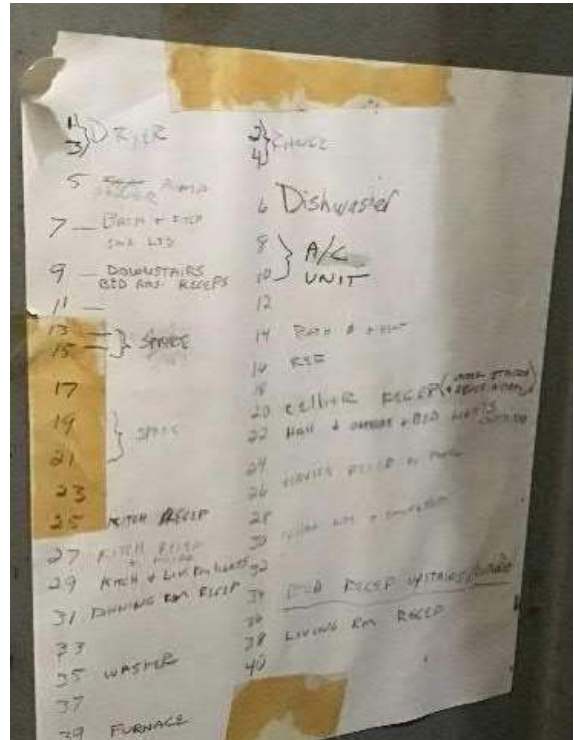 1
3 } DRYER
5 PUMP
7 — BATH + KITCH
SINK LTS
9 — DOWNSTAIRS
BED RMS. RECEPS
11 —
13
15 } SPARE
17
19
21 } SPARE
23
25 KITCH RECEP
27 KITCH RECEP
29 KITCH + LIV. RM LIGHTS
31 DINNING RM RECEP
33
35 WASHER
37
39 FURNACE
2
4 } RANGE
6 Dishwasher
8
10 } A/C
UNIT
12
14 BATH
16 REF
18
20 RECEP
22 HALL + + BED LIGHTS
24
26
28
30
32
34 BED RECEP UPSTAIRS
36
38 LIVING RM RECEP
40